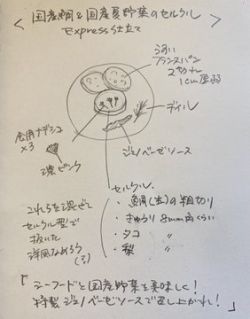 < 国産鯛と国産夏野菜のセルクル >
Express仕立て
うすい
フランスパン
2切れ
1cm厚弱
ディル
食用ナデシコ
×3
濃ピンク
ジェノベーゼソース
セルクル
・鯛(生)の粗切り
・きゅうり 8mm角くらい
・タコ 〃
・梨 〃
これらを混ぜて
セルクル型で
抜いた
洋風なめろう
(?)
「シーフードと国産野菜を美味しく!
特製ジェノベーゼソースで召し上がれ!」